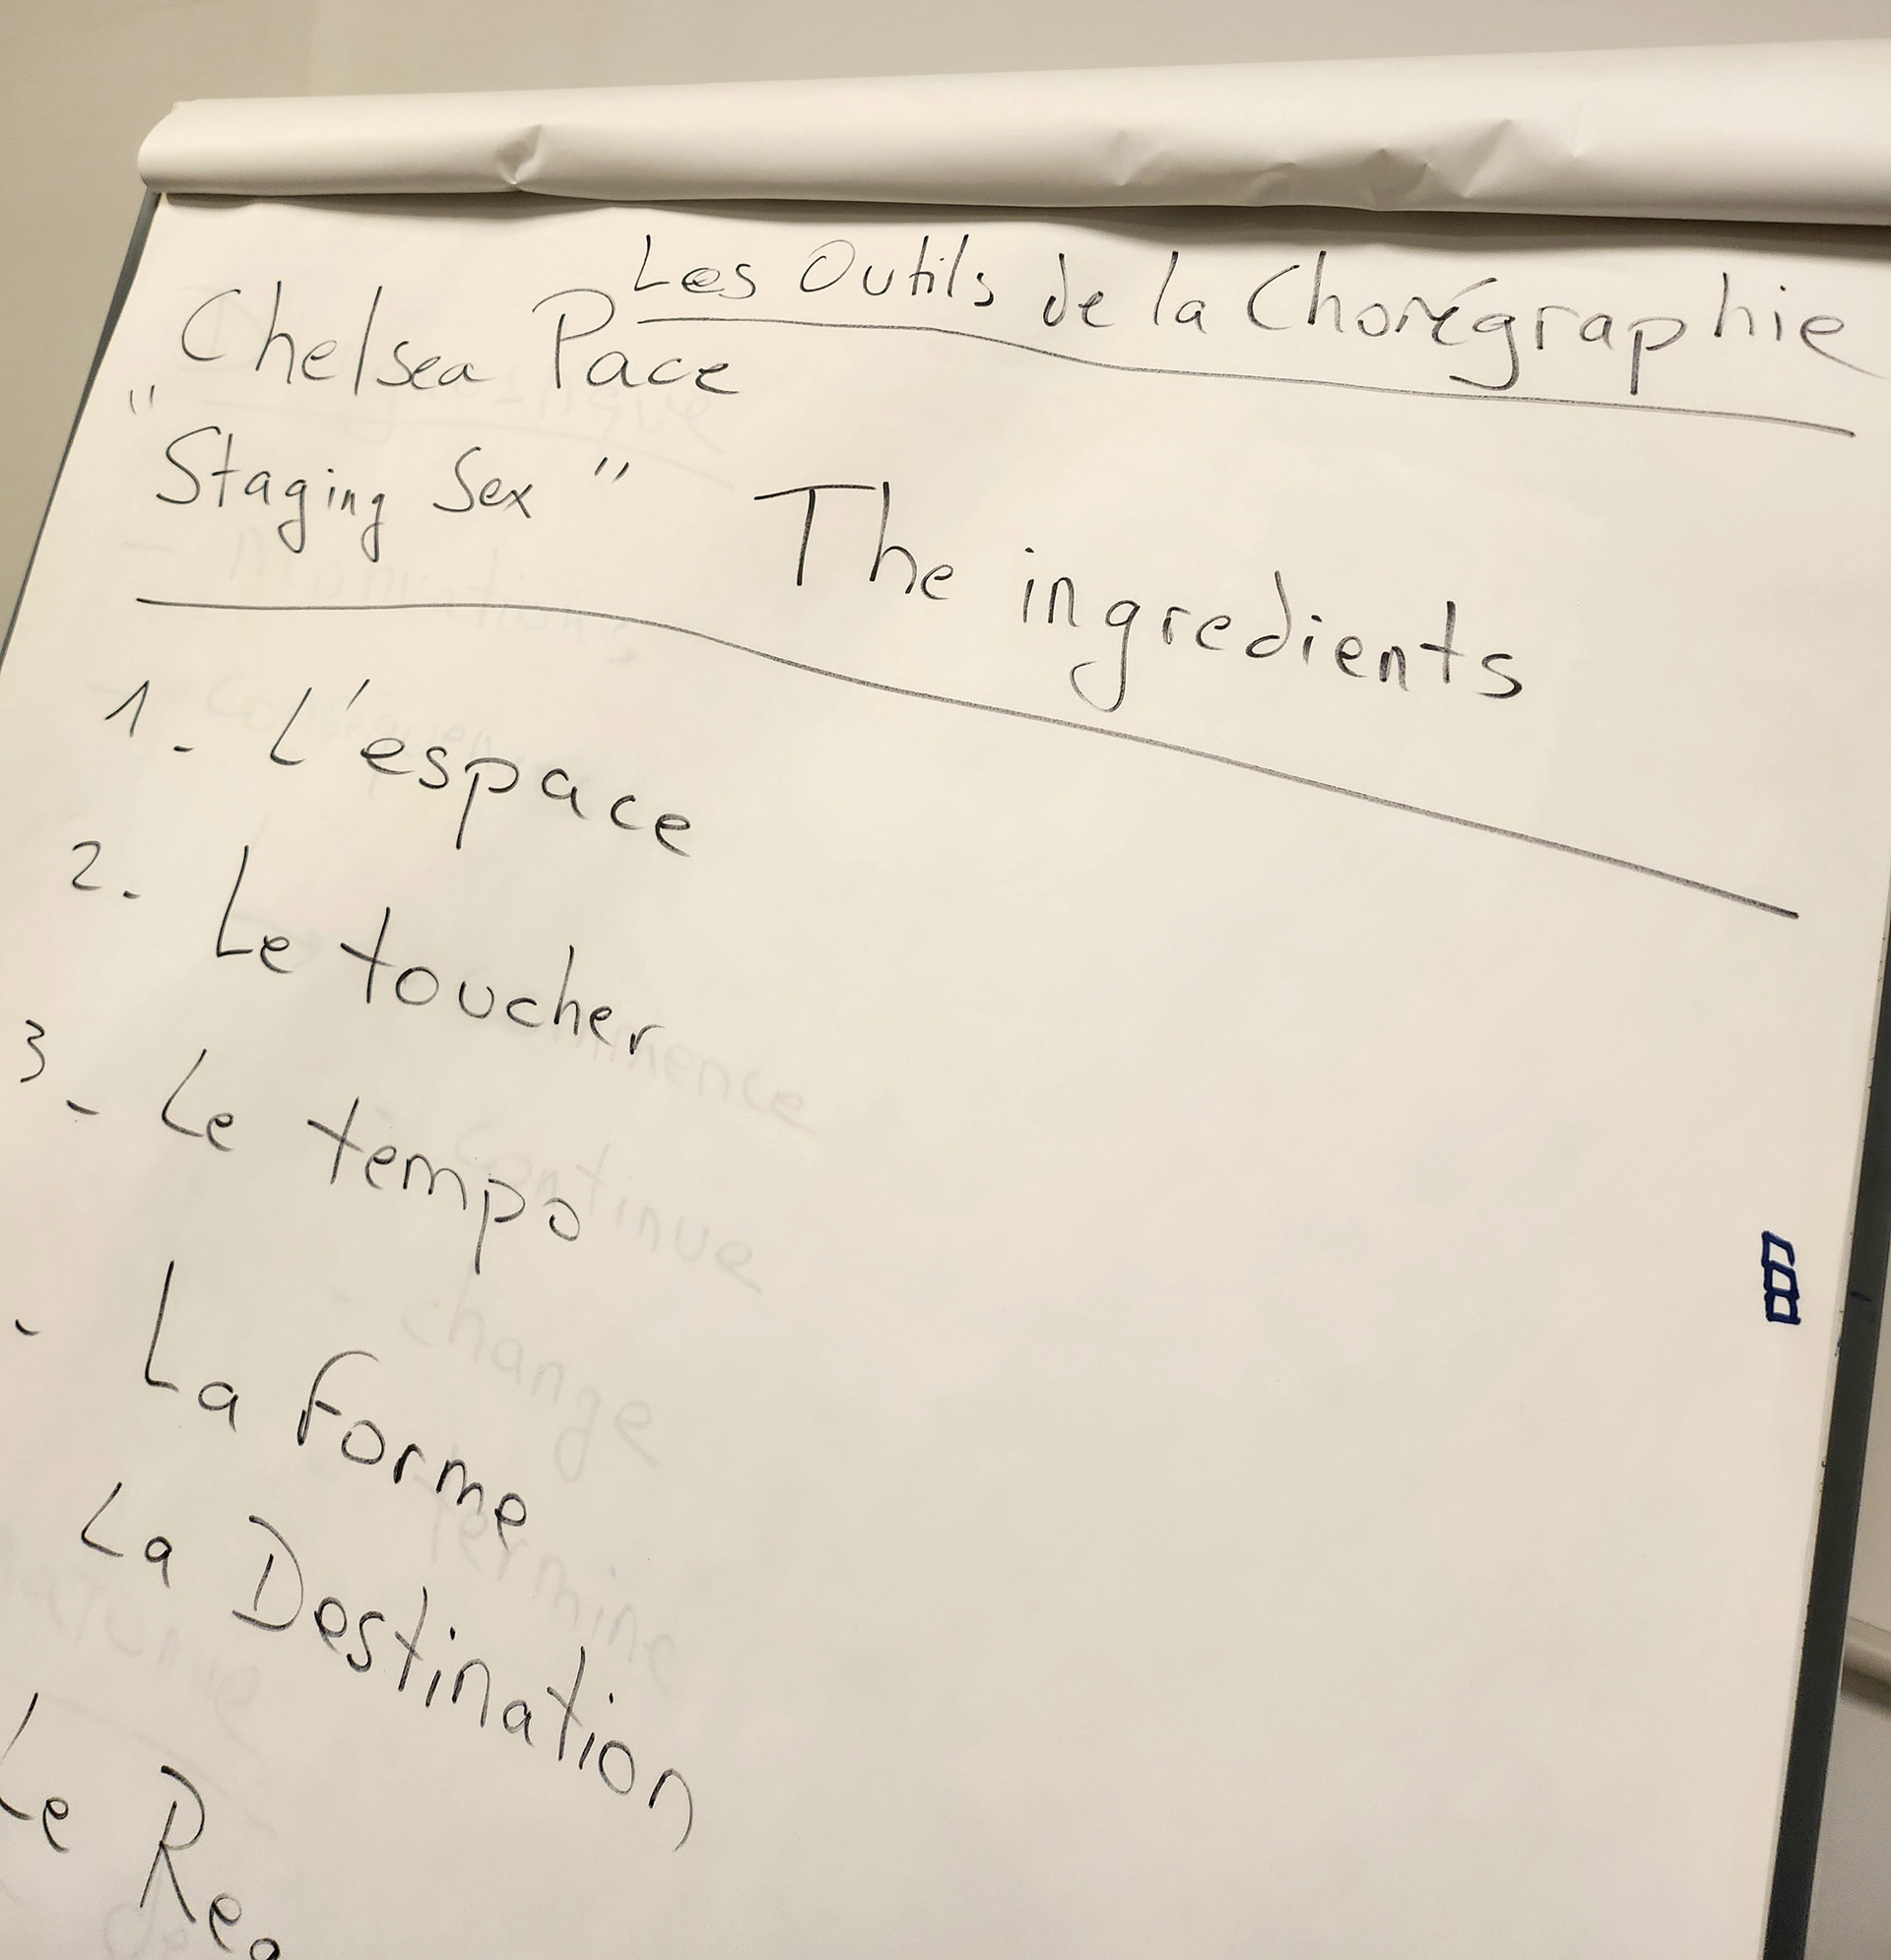 Les Outils de la Chorégraphie
Chelsea Pace
"Staging Sex"
The ingredients
1. L'espace
2. Le toucher
3. Le tempo
- La forme
La Destination
Le